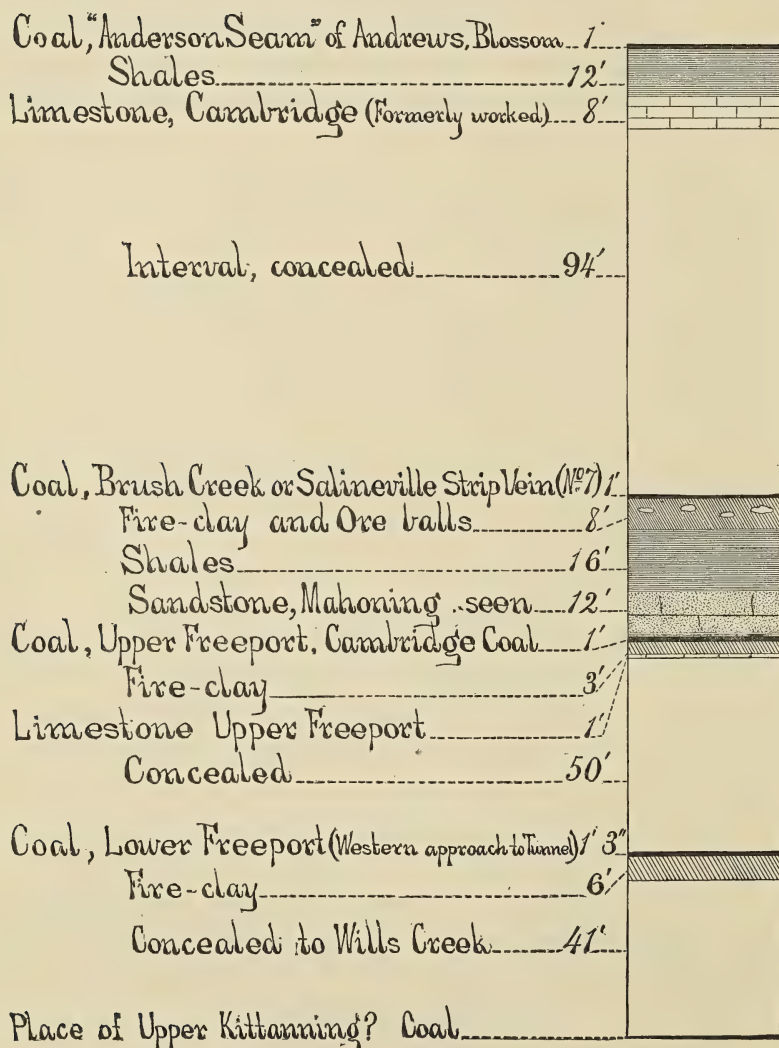 Coal, "Anderson Seam" of Andrews, Blossom 1'
Shales 12'
Limestone, Cambridge (Formerly worked) 8'
Interval, concealed 94'
Coal, Brush Creek or Salineville Strip Vein (No 7) 1'
Fire-clay and Ore balls 8'
Shales 16'
Sandstone, Mahoning seen 12'
Coal, Upper Freeport, Cambridge Coal 1'
Fire-clay 3'
Limestone Upper Freeport 1'
Concealed 50'
Coal, Lower Freeport (Western approach to Tunnel) 1' 3"
Fire-clay 6'
Concealed to Wills Creek 41'
Place of Upper Kittanning? Coal